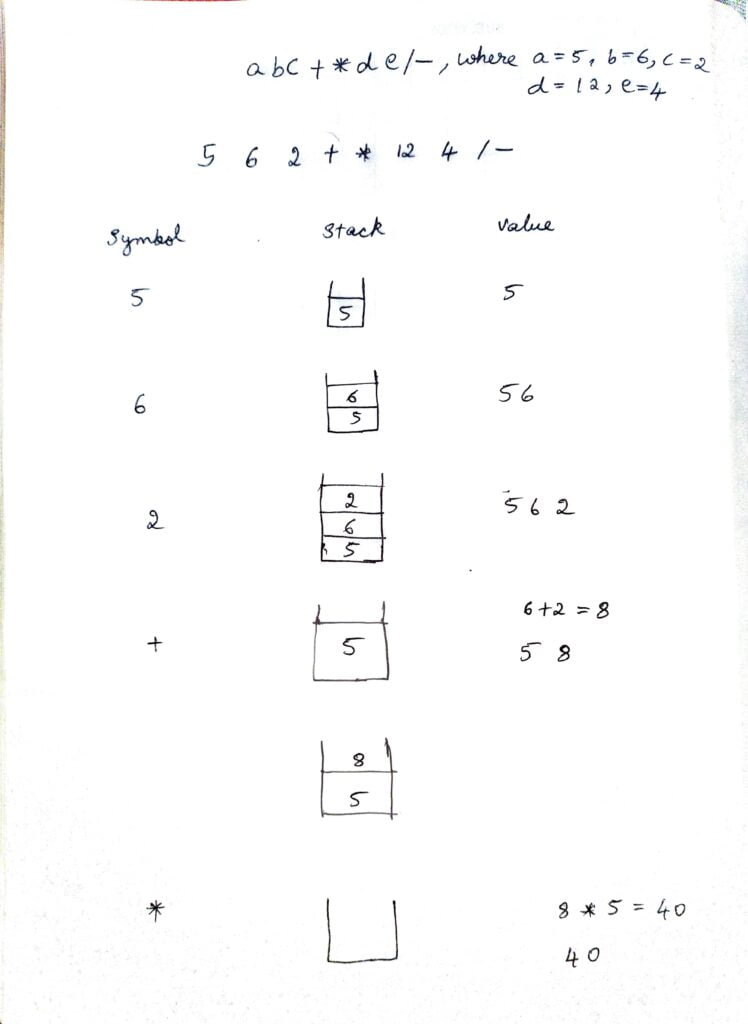 abc+*de/-, where a=5, b=6, c=2
d=12, e=4
5 6 2 + * 12 4 /-
Symbol Stack Value
5 5 5
6 6 56
5
2 2 562
6
5
6+2=8
+ 5 5 8
8
5
* 8*5=40
40